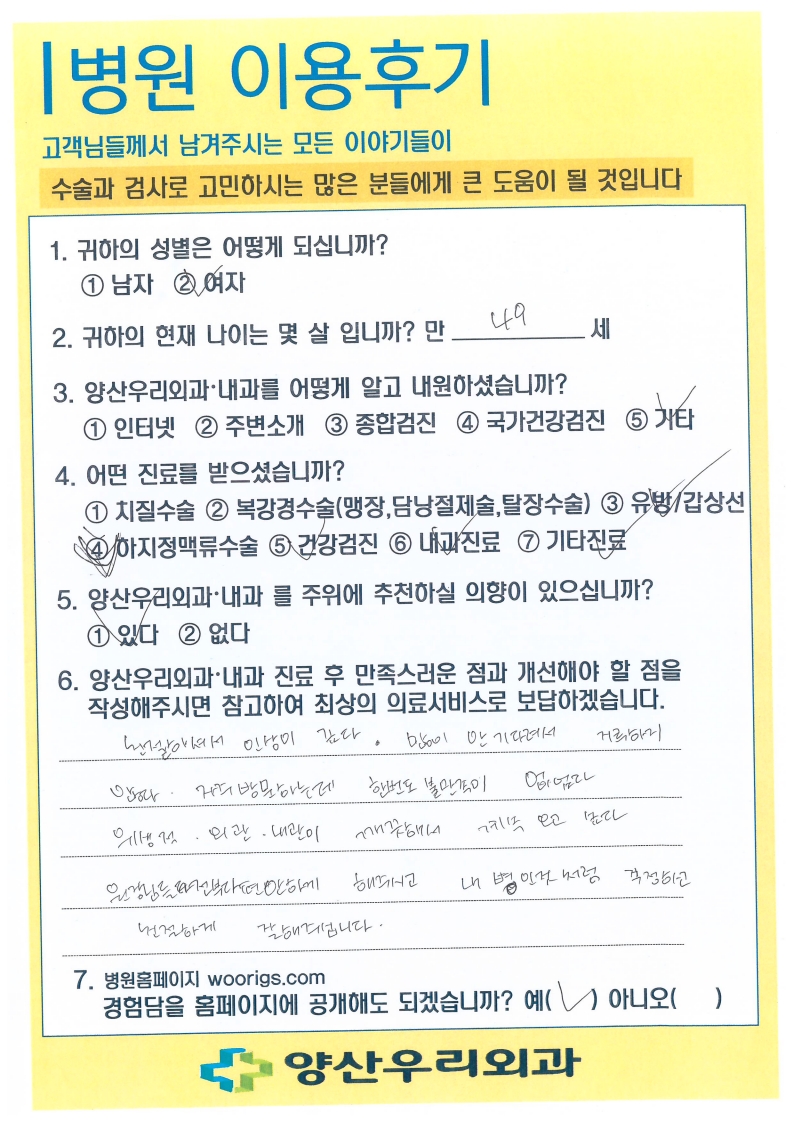 병원 이용후기
고객님들께서 남겨주시는 모든 이야기들이
수술과 검사로 고민하시는 많은 분들에게 큰 도움이 될 것입니다
1. 귀하의 성별은 어떻게 되십니까?
① 남자 ② 여자
2. 귀하의 현재 나이는 몇 살 입니까? 만 49 세
3. 양산우리외과·내과를 어떻게 알고 내원하셨습니까?
① 인터넷 ② 주변소개 ③ 종합검진 ④ 국가건강검진 ⑤ 기타
4. 어떤 진료를 받으셨습니까?
① 치질수술 ② 복강경수술(맹장,담낭절제술,탈장수술) ③ 유방/갑상선
④ 하지정맥류수술 ⑤ 건강검진 ⑥ 내과진료 ⑦ 기타진료
5. 양산우리외과·내과 를 주위에 추천하실 의향이 있으십니까?
① 있다 ② 없다
6. 양산우리외과·내과 진료 후 만족스러운 점과 개선해야 할 점을
작성해주시면 참고하여 최상의 의료서비스로 보답하겠습니다.
친절하셔서 인상이 깊다. 많이 안 기다려서
방문하는데 한번도 불만족이
위생적. 외관. 내관이 깨끗해서 계속 오고
편안하게 해주시고 내 병인것 처럼 걱정하고
친절하게 잘해주십니다.
7. 병원홈페이지 woorigs.com
경험담을 홈페이지에 공개해도 되겠습니까? 예( ✓ ) 아니오( )
양산우리외과